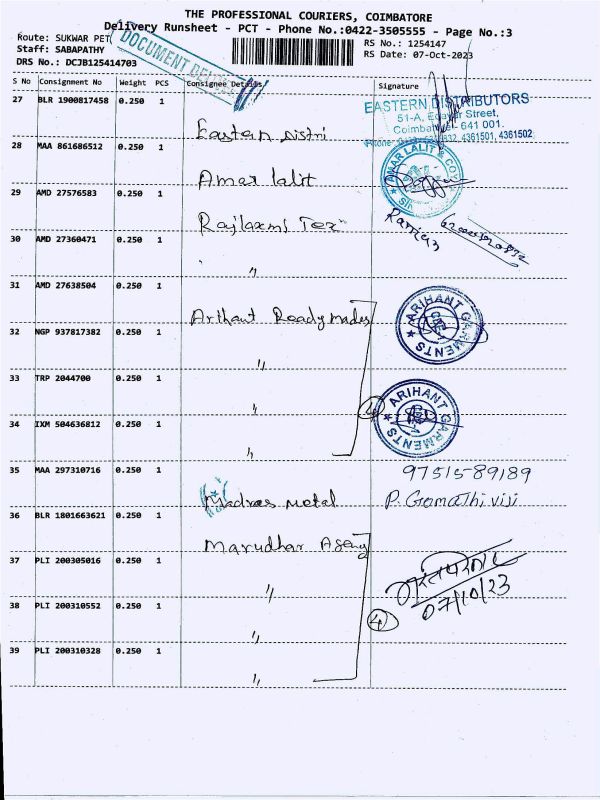 THE PROFESSIONAL COURIERS, COIMBATORE
Delivery Runsheet - PCT - Phone No.:0422-3505555 - Page No.:3
Route: SUKWAR PET
RS No.: 1254147
Staff: SABAPATHY
RS Date: 07-Oct-2023
DRS No.: DCJB125414703
DOCUMENT
S No Consignment No Weight PCS Consignee Details Signature
27 BLR 1900817458 0.250 1 Eastern Distri
EASTERN DISTRIBUTORS
51-A, Street,
Coimbatore - 641 001.
4361501, 4361502
28 MAA 861686512 0.250 1 Amar lalit
AMAR LALIT & CO
29 AMD 27576583 0.250 1 Rajlaxmi Tex
30 AMD 27360471 0.250 1 "
31 AMD 27638504 0.250 1 Arihant Readymades
ARIHANT GARMENTS
32 NGP 937817382 0.250 1 "
33 TRP 2044700 0.250 1 "
ARIHANT GARMENTS
4
34 IXM 504636812 0.250 1 "
35 MAA 297310716 0.250 1 Madras metal
97515-89189
P. Gomathi viji
36 BLR 1801663621 0.250 1 Marudhar Agency
37 PLI 200305016 0.250 1 "
07/10/23
38 PLI 200310552 0.250 1 "
4
39 PLI 200310328 0.250 1 "